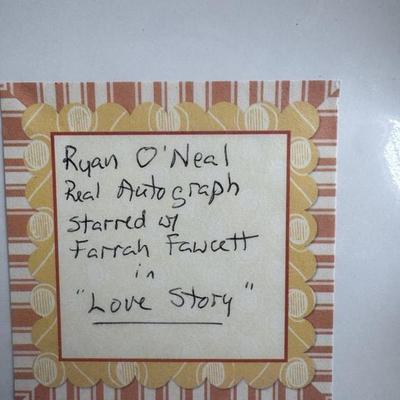 Ryan O'Neal
Real Autograph
Starred w/
Farrah Fawcett
in
"Love Story"